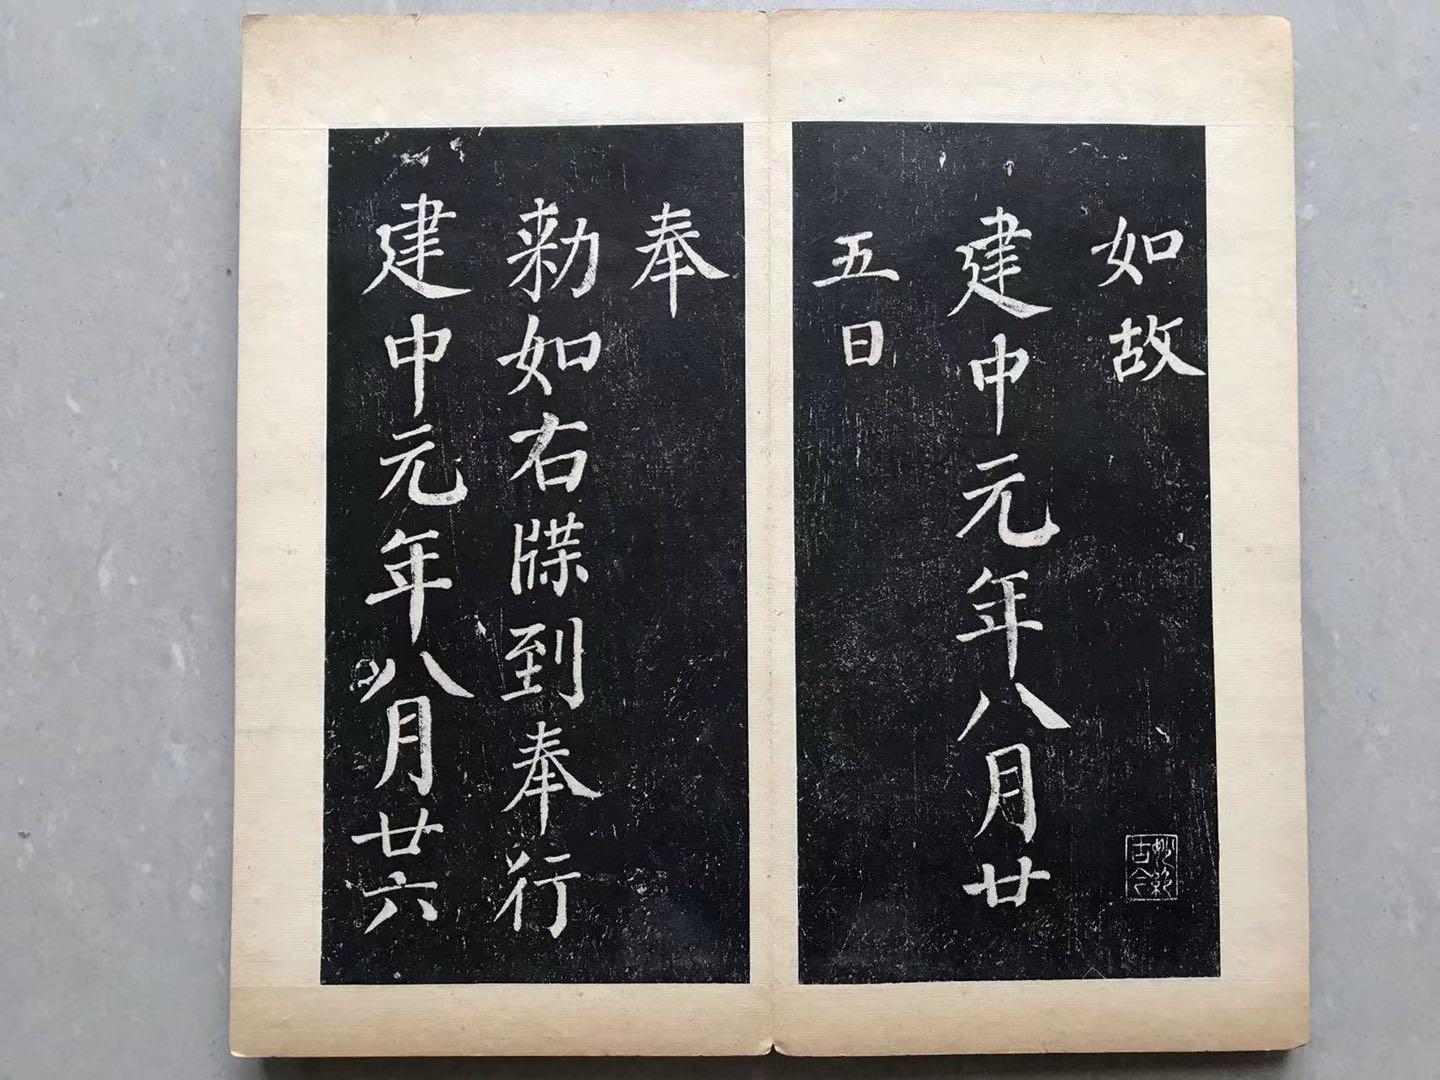 如故
建中元年八月廿
五日
奉
勅如右牒到奉行
建中元年八月廿六